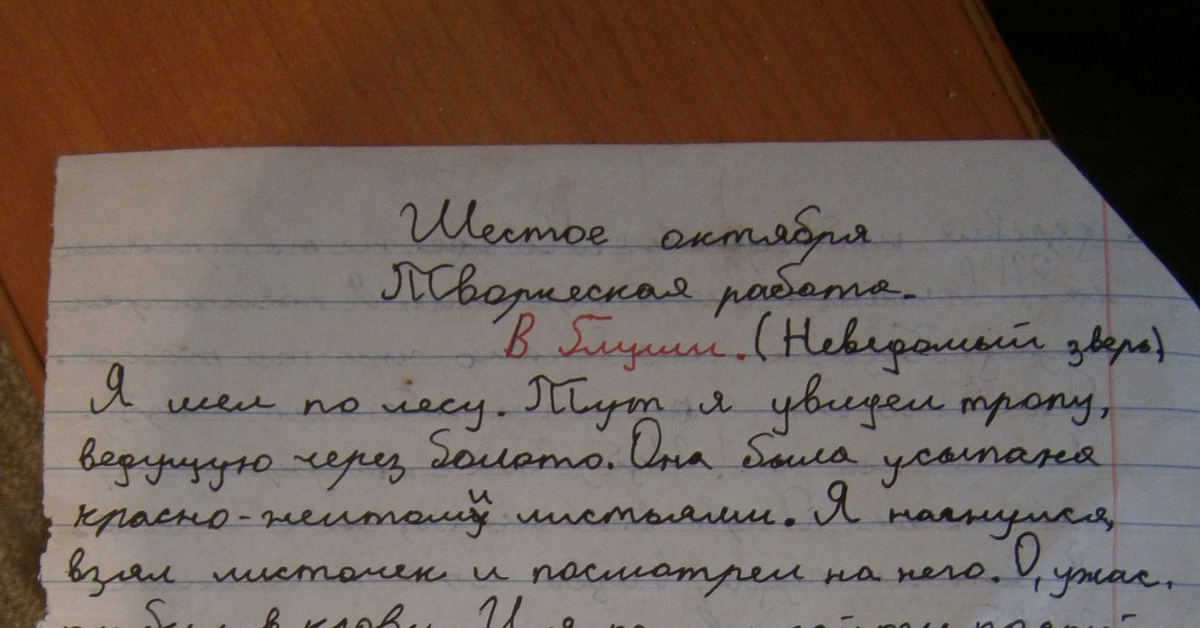 Шестое октября
Творческая работа.
В глуши. (Неведомый зверь)
Я шел по лесу. Тут я увидел тропу,
ведущую через болото. Она была усыпана
красно-желтыми листьями. Я нагнулся,
взял листочек и посмотрел на него. О, ужас,
был в крови. И я